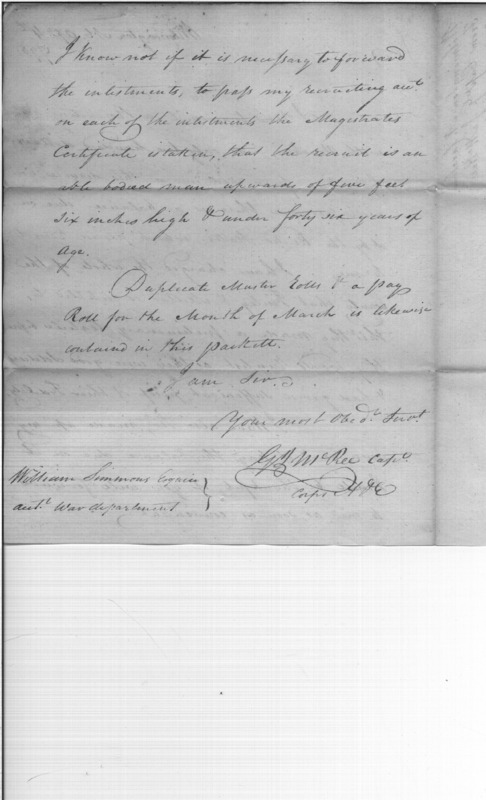 I know not if it is necessary to forward
the inlistments, to pass my recruiting acct.
on each of the inlistments the Magistrates
Certificate is taken, that the recruit is an
able bodied man upwards of five feet
six inches high & under forty six years of
age.
Duplicate Muster Rolls & a pay
Roll for the Month of March is likewise
contained in this packett.
I am Sir.
Your most Obedt. Servt.
McRee Capt.
Corps A & E
William Simmons Esquire
acct. War department